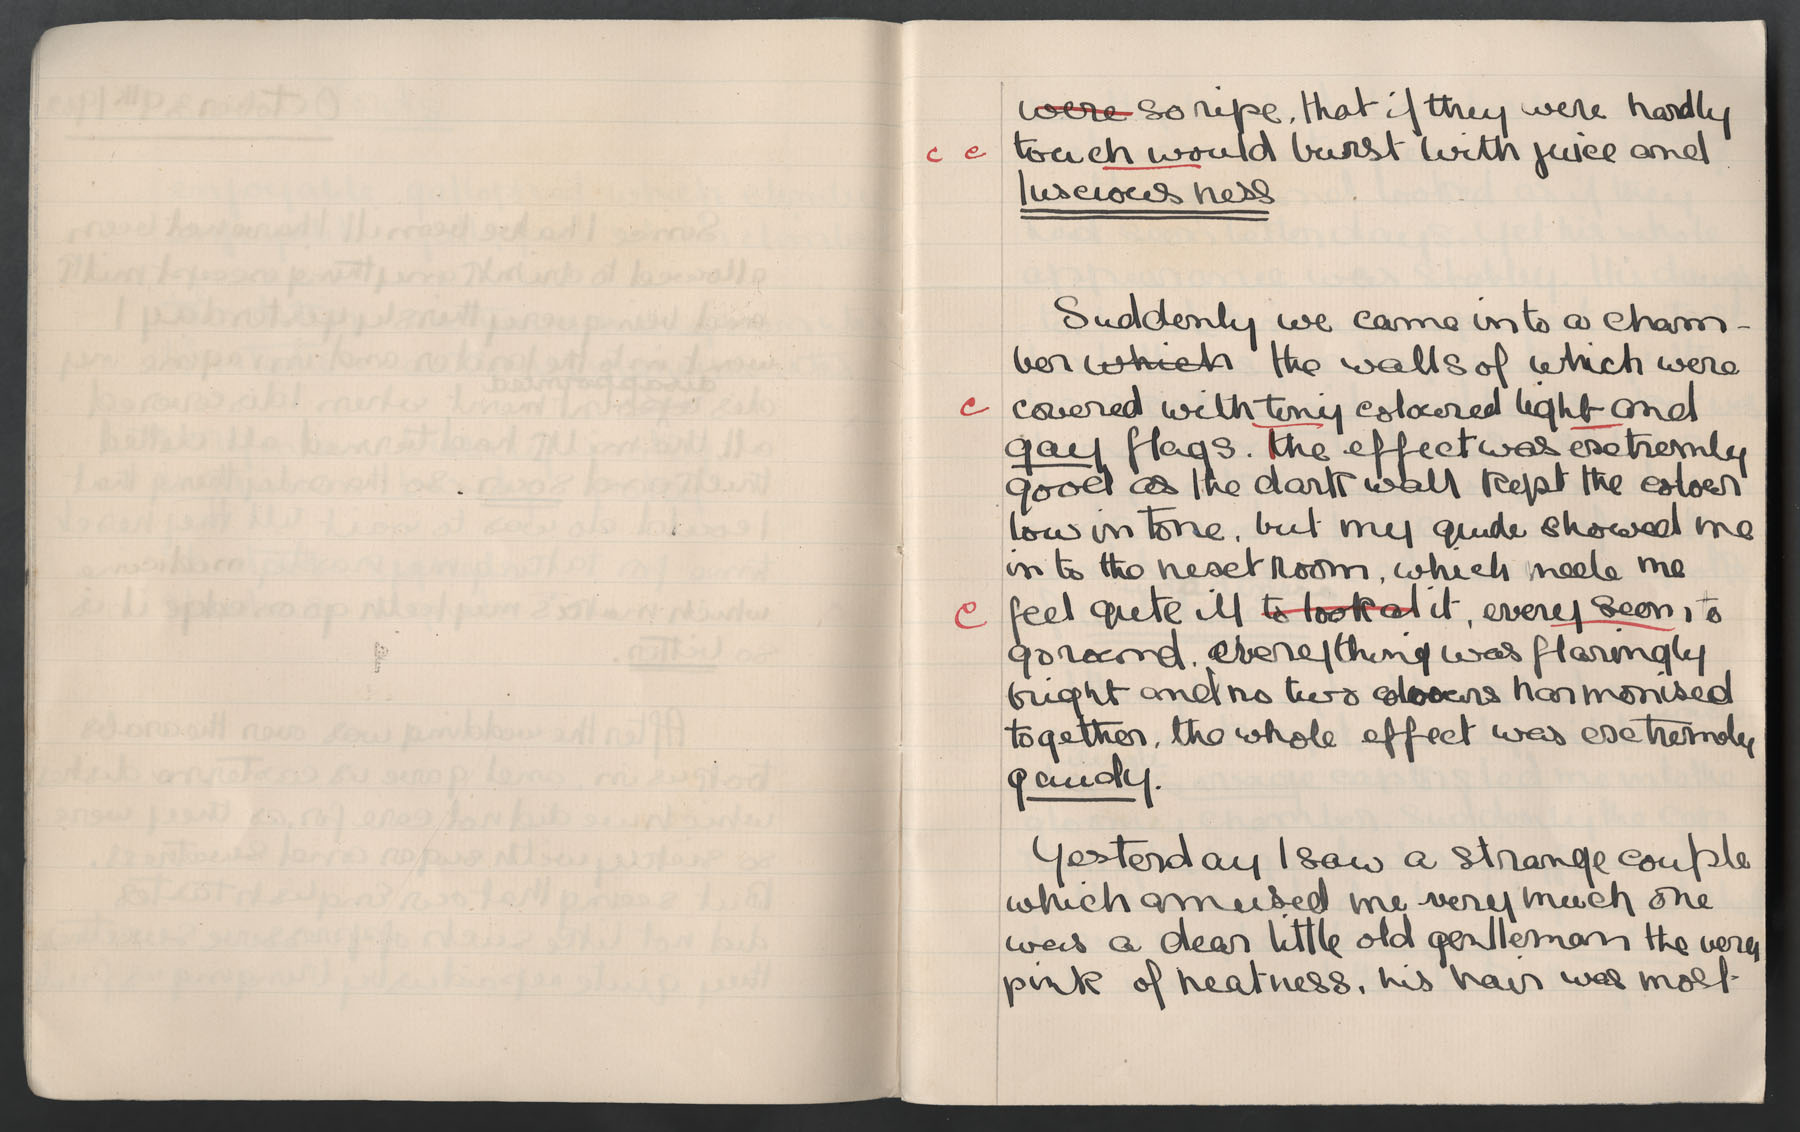 were so ripe, that if they were hardly
c c touch would burst with juice and
lusciousness
Suddenly we came into a cham-
ber which the walls of which were
c covered with tiny coloured light and
gay flags. The effect was extremly
good as the dark wall kept the colour
low in tone, but my guide showed me
into the next room, which made me
c feel quite ill to look at it, every seem, to
go round. everything was flaringly
bright and no two colours harmonised
together, the whole effect was extremely
gaudy.
Yesterday I saw a strange couple
which amused me very much one
was a dear little old gentleman the very
pink of neatness, his hair was most